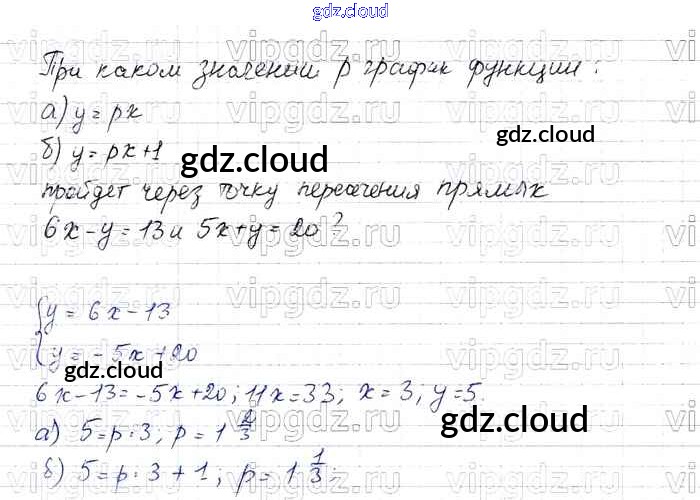 gdz.cloud
gdz.cloud
При каком значении p график функции:
а) y = px
б) y = px + 1
gdz.cloud
gdz.cloud
пройдет через точку пересечения прямых
6x - y = 13 и 5x + y = 20?
{y = 6x - 13
{y = -5x + 20
gdz.cloud
6x - 13 = -5x + 20; 11x = 33; x = 3; y = 5.
а) 5 = p · 3; p = 1 2/3
gdz.cloud
б) 5 = p · 3 + 1; p = 1 1/3;
vipgdz.ru